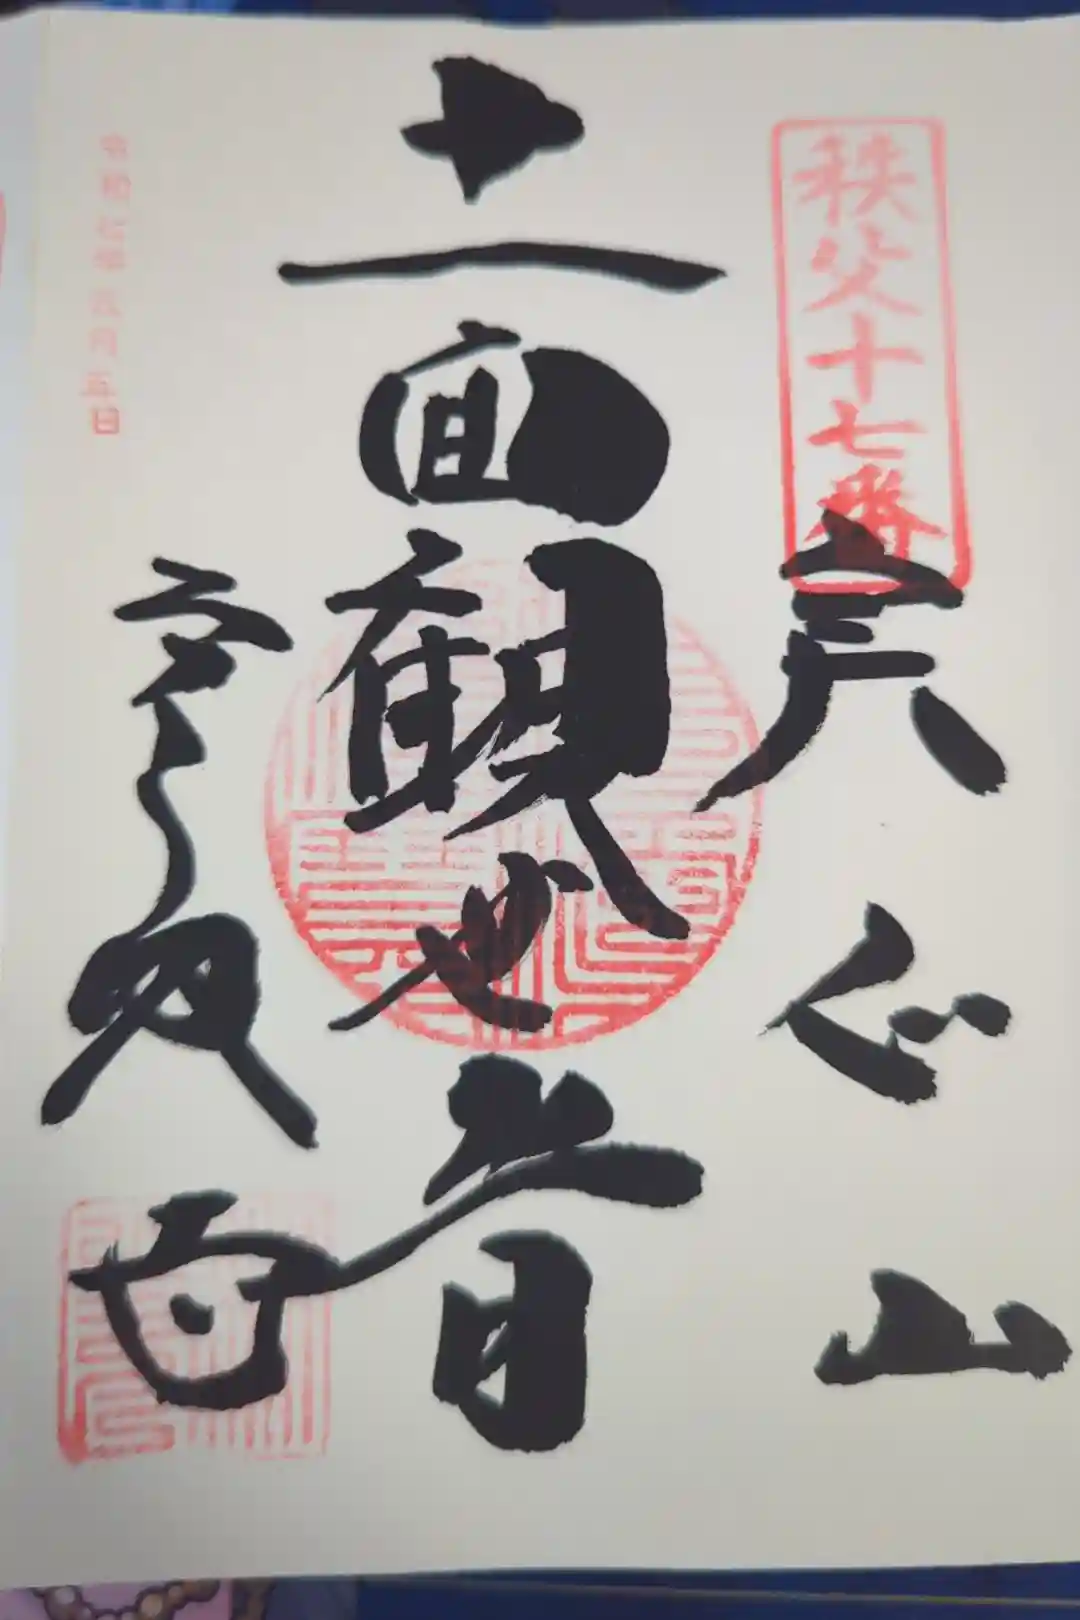 秩父十七番
実正山
十一面観世音
定林寺
令和七年 月五日